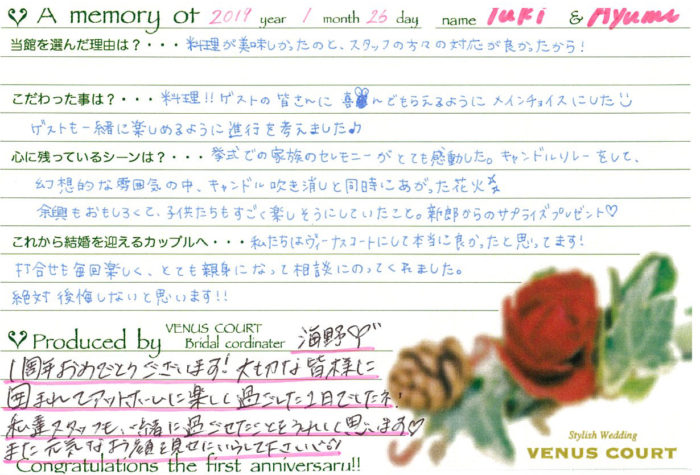 A memory of 2019 year 1 month 26 day name Yuki & Ayumi
当館を選んだ理由は？・・・料理が美味しかったのと、スタッフの方々の対応が良かったから！
こだわった事は？・・・料理!!ゲストの皆さんに喜んでもらえるようにメインチョイスにした
ゲストも一緒に楽しめるように進行を考えました♪
心に残っているシーンは？・・・挙式での家族のセレモニーがとても感動した。キャンドルリレーをして、
幻想的な雰囲気の中、キャンドル吹き消しと同時にあがった花火
余興もおもしろくて、子供たちもすごく楽しそうにしていたこと。新郎からのサプライズプレゼント♡
これから結婚を迎えるカップルへ・・・私たちはヴィーナスコートにして本当に良かったと思ってます!
打合せも毎回楽しく、とても親身になって相談にのってくれました。
絶対後悔しないと思います!!
Produced by VENUS COURT Bridal cordinater 海野
1周年おめでとうございます! 大切な皆様に
囲まれてアットホームに楽しく過ごした1日でしたネ!
私達スタッフも、一緒に過ごせたことをうれしく思います♡
また元気なお顔を見せにいらして下さいね
Congratulations the first anniversaru!!
Stylish Wedding
VENUS COURT